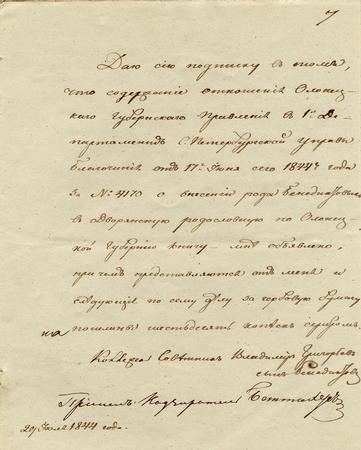 7
Даю сію подписку въ томъ,
что содержаніе отношенія Олонец-
каго Губернскаго Правленія въ 1й Де-
партаментъ С. Петербургской Управы
Благочинія отъ 17го Іюня сего 1844го года
за № 4170 о внесеніи рода Бенедиктовыхъ
въ Дворянскую родословную по Олонец-
кой Губерніи книгу - мнѣ объявлено,
при чемъ представляются отъ меня и
слѣдующія по сему дѣлу за гербовую бумагу
пошлины шестьдесятъ копѣекъ серебромъ.
Совѣтникъ Владиміръ Григорьевъ
сынъ Бенедиктовъ
Принялъ Надзиратель
Іюля 1844 года.